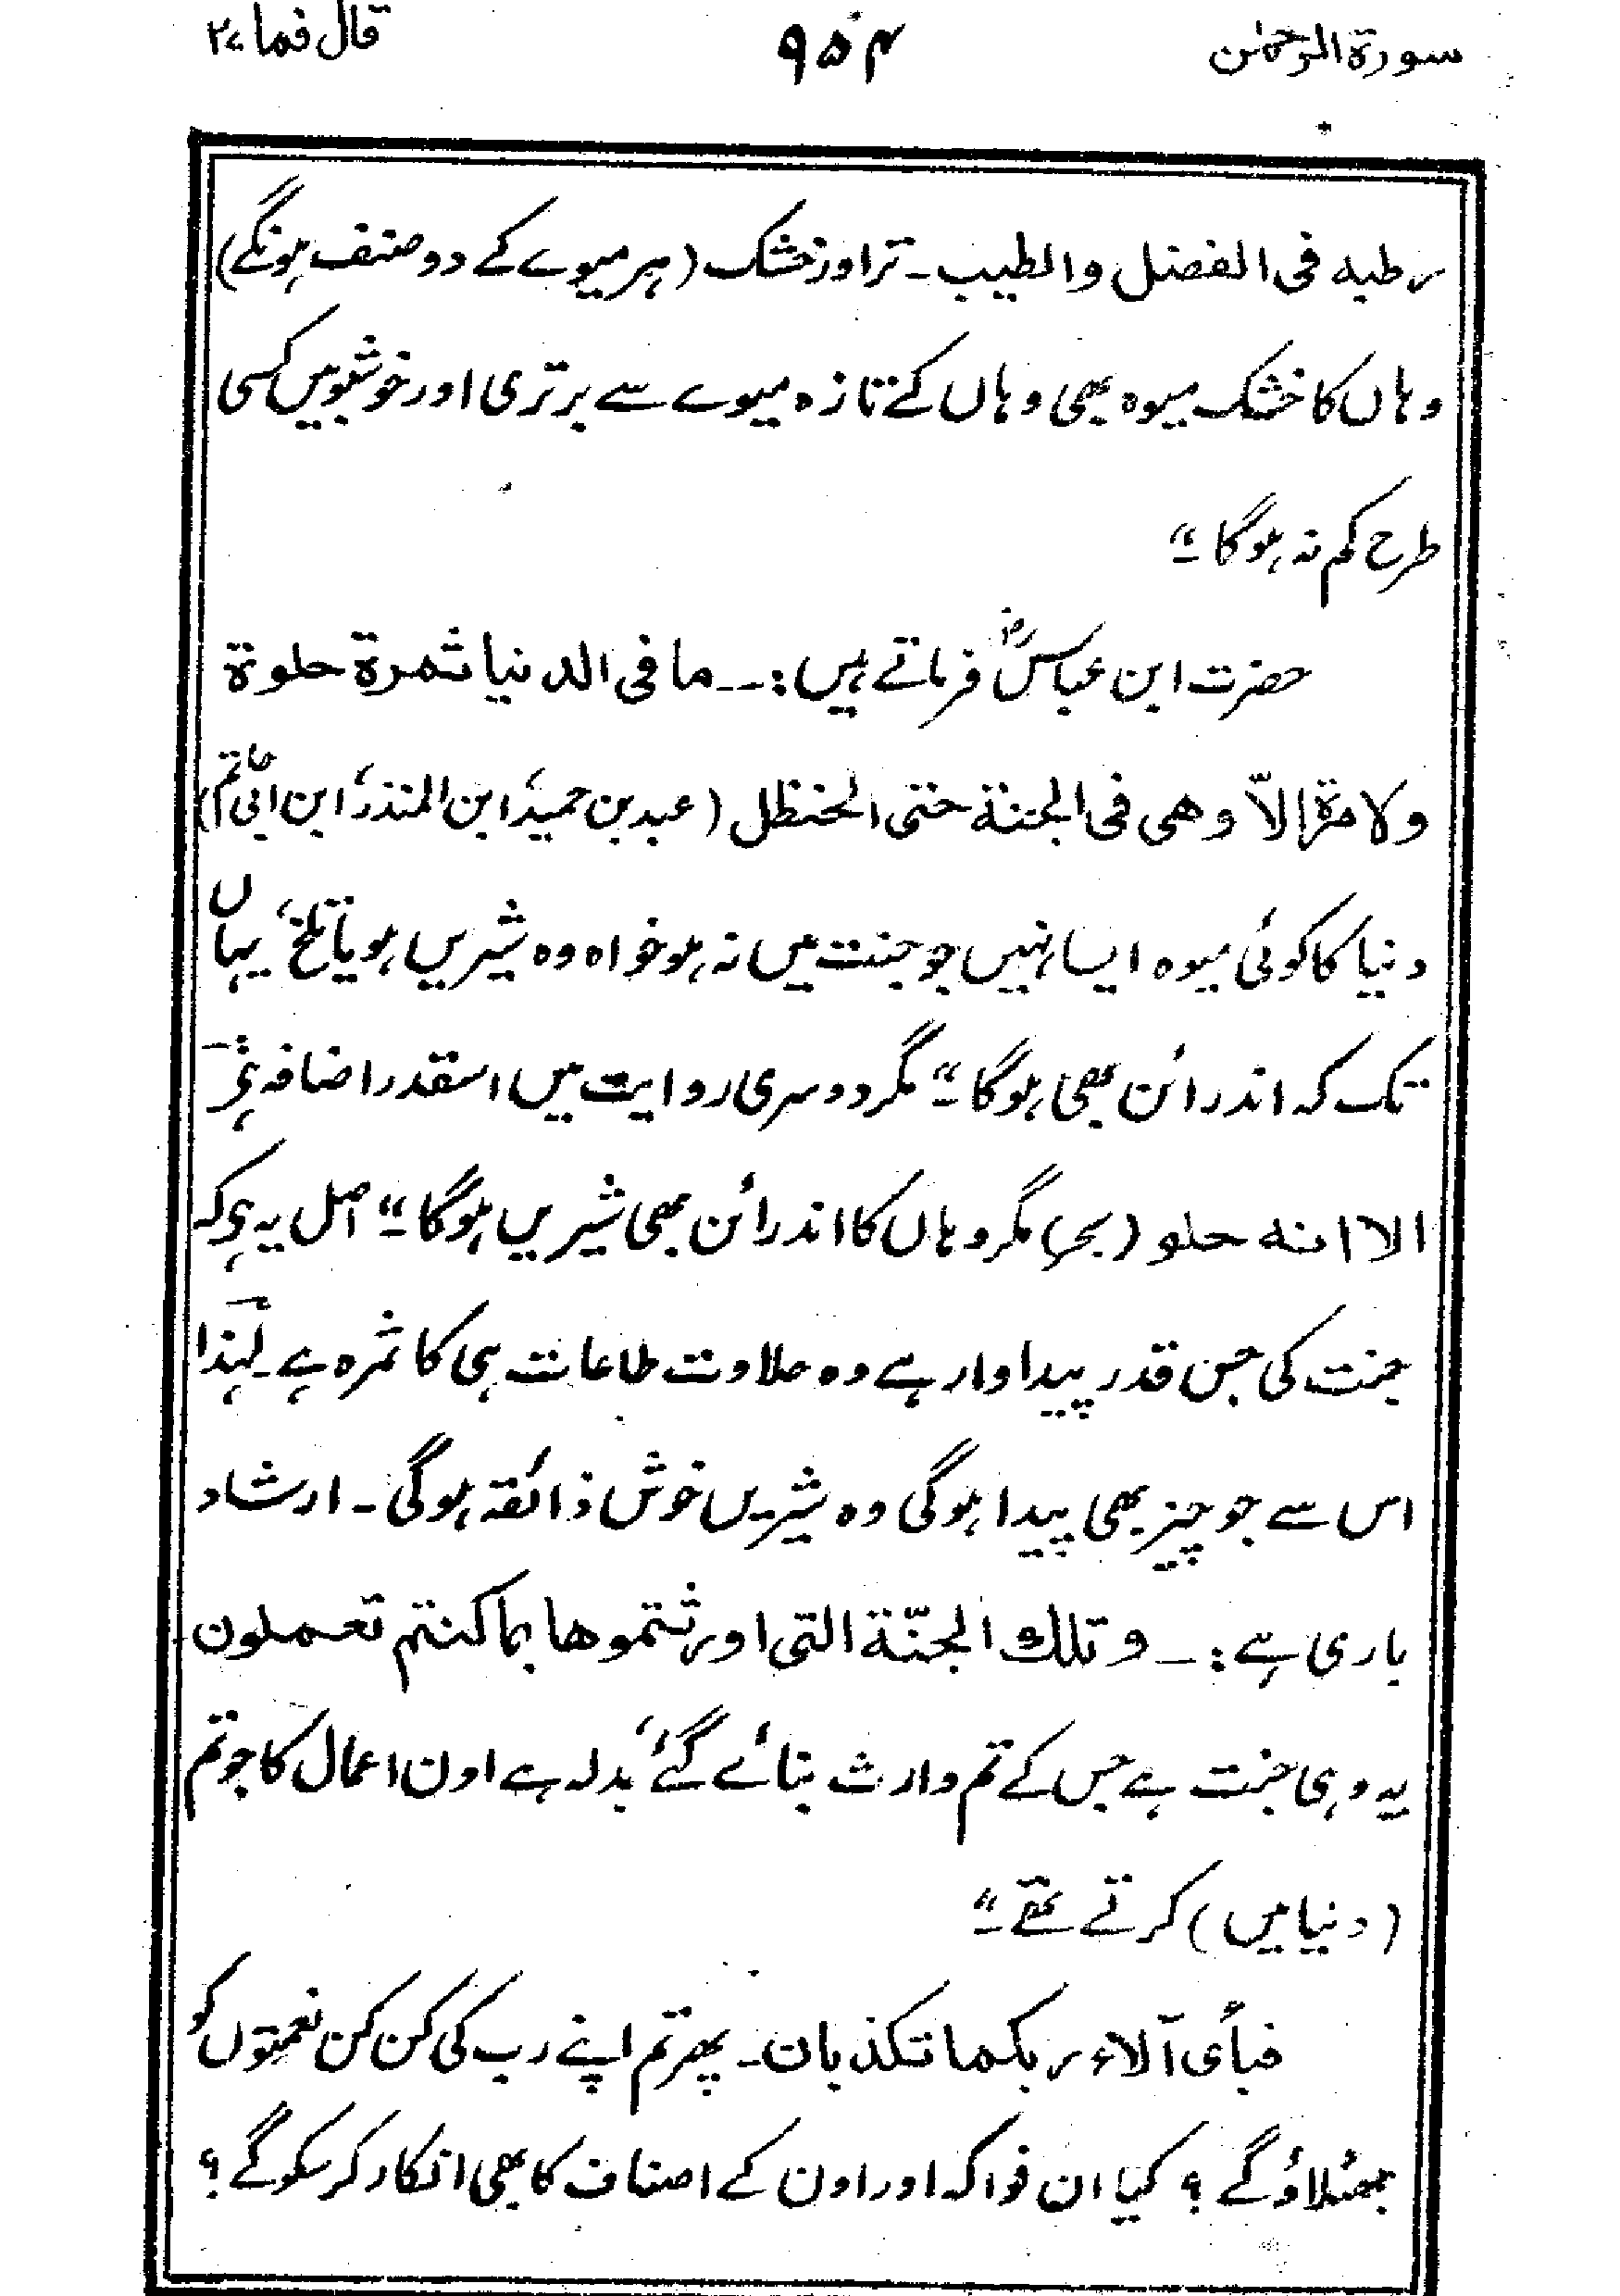 سورة الرحمٰن ۹۵۴ قال فما ۲۷
رطبه فی الفضل والطیب۔ تر اور خشک (ہر میوے کے دو صنف ہونگے)
وہاں کا خشک میوہ بھی وہاں کے تازہ میوے سے برتری اور خوشبو میں کسی
طرح کم نہ ہوگا۔“
حضرت ابن عباسؓ فرماتے ہیں:۔۔ ما فی الدنیا ثمرة حلوة
ولا مرة إلاّ وهی فی الجنة حتی الحنظل (عبد بن حمید، ابن المنذر، ابن ابی حاتم)
دنیا کا کوئی میوہ ایسا نہیں جو جنت میں نہ ہو خواہ وہ شیریں ہو یا تلخ، یہاں
تک کہ اندرائن بھی ہوگا۔“ مگر دوسری روایت میں اسقدر اضافہ ہے:۔
الا انه حلو (بحر) مگر وہاں کا اندرائن بھی شیریں ہوگا۔“ اصل یہ ہے کہ
جنت کی جس قدر پیداوار ہے وہ حلاوت طاعات ہی کا ثمرہ ہے۔ لہٰذا
اس سے جو چیز بھی پیدا ہوگی وہ شیریں خوش ذائقہ ہوگی۔ ارشاد
باری ہے:۔ وتلك الجنّة التی اورثتموها بما کنتم تعملون
یہ وہی جنت ہے جس کے تم وارث بنائے گئے، بدلہ ہے اون اعمال کا جو تم
(دنیا میں) کرتے تھے۔“
فبأی آلاء ربکما تکذبان۔ پھر تم اپنے رب کی کن کن نعمتوں کو
جھٹلاؤ گے؟ کیا ان فواکہ اور اون کے اصناف کا بھی انکار کر سکو گے؟